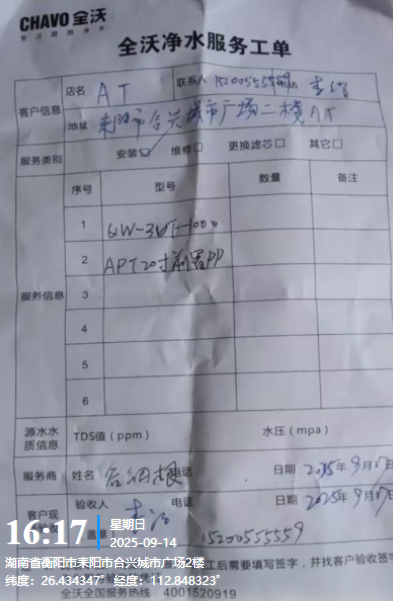 CHAVO 全沃
专注商用净水
全沃净水服务工单
客户信息
店名 AT 联系人 15200555559 李
地址 耒阳市合兴城市广场二楼AT
服务类别 安装☑ 维修□ 更换滤芯□ 其它□
服务信息
序号 型号 数量 备注
1 QW-3UT-1000
2 APT20寸前置PP
3
4
5
6
源水水质信息 TDS值（ppm） 水压（mpa）
服务商 姓名 电话 日期 2025年9月17日
验收人 李 电话 日期 2025年9月17日
客户现
盖章 15200555559
16:17 星期日
2025-09-14
湖南省衡阳市耒阳市合兴城市广场2楼
工后需要填写签字，并找客户验收签字
纬度：26.434347° 经度：112.848323°
全沃全国服务热线 4001520919